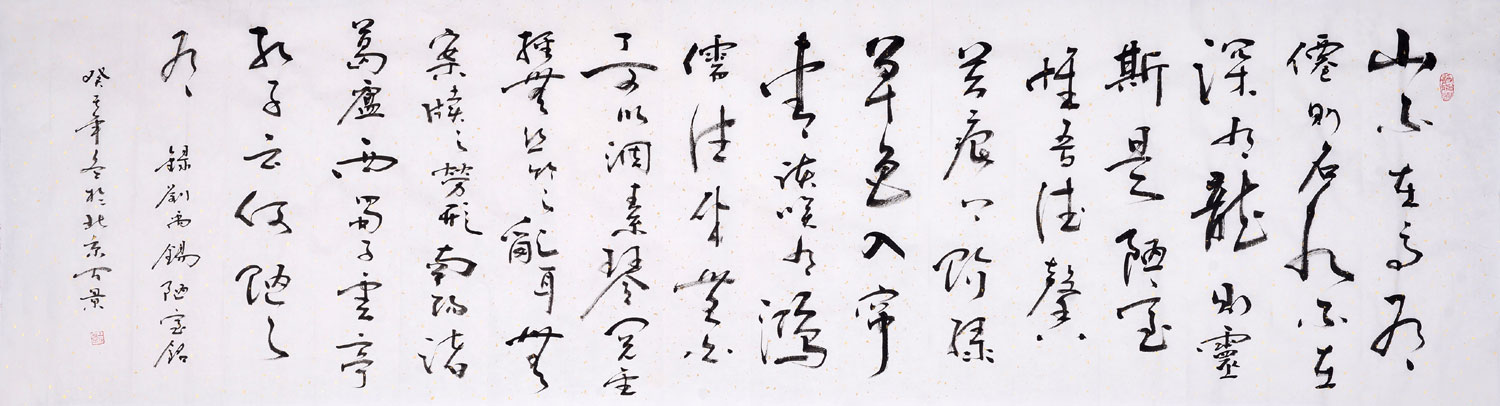 山不在高有
僊则名水不在
深有龍则靈
斯是陋室
惟吾德馨
苔痕上階綠
草色入帘
青談笑有鴻
儒往来無白
丁可以調素琴閱金
經無絲竹之亂耳無
案牘之勞形南陽諸
葛廬西蜀子雲亭
孔子云何陋之
有
錄劉禹錫陋室銘
癸年冬於北京